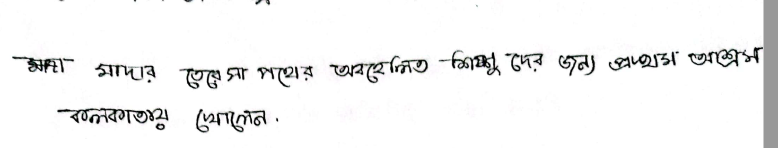 মাদার তেরেসা পথের অবহেলিত শিশু দের জন্য প্রথম আশ্রম
কলকাতায় খোলেন.